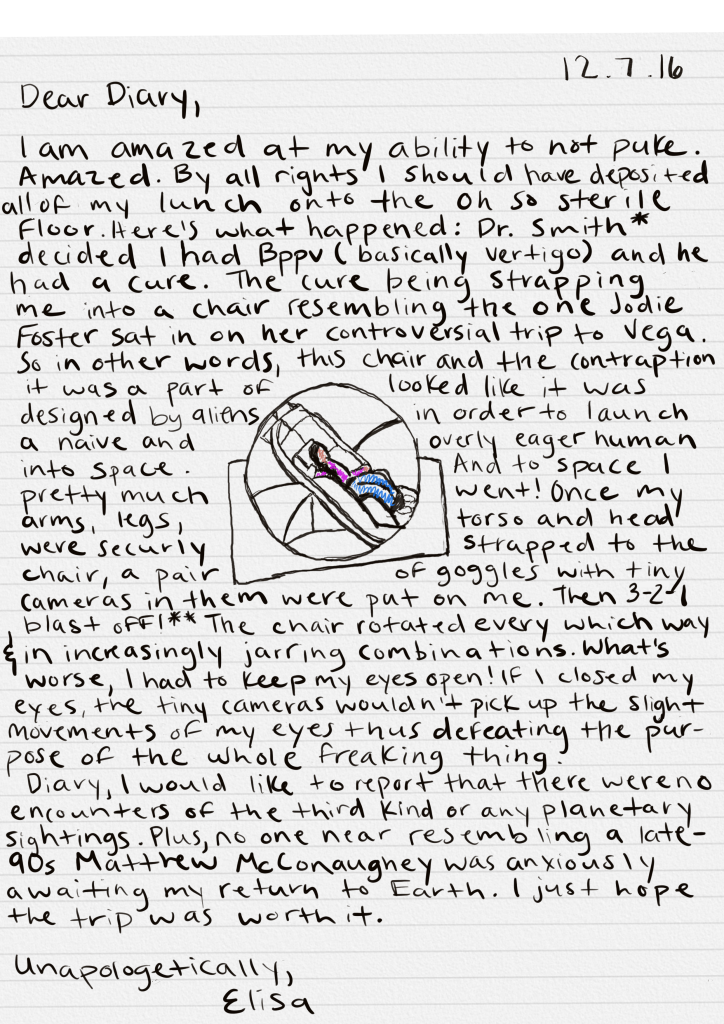 12.7.16
Dear Diary,
I am amazed at my ability to not puke.
Amazed. By all rights I should have deposited
all of my lunch onto the oh so sterile
floor. Here's what happened: Dr. Smith*
decided I had BPPV (basically vertigo) and he
had a cure. The cure being strapping
me into a chair resembling the one Jodie
Foster sat in on her controversial trip to Vega.
So in other words, this chair and the contraption
it was a part of looked like it was
designed by aliens in order to launch
a naive and overly eager human
into space. And to space I
pretty much went! Once my
arms, legs, torso and head
were securly strapped to the
chair, a pair of goggles with tiny
cameras in them were put on me. Then 3-2-1
blast off!** The chair rotated every which way
& in increasingly jarring combinations. What's
worse, I had to keep my eyes open! If I closed my
eyes, the tiny cameras wouldn't pick up the slight
movements of my eyes thus defeating the pur-
pose of the whole freaking thing.
Diary, I would like to report that there were no
encounters of the third kind or any planetary
sightings. Plus, no one near resembling a late-
90s Matthew McConaughey was anxiously
awaiting my return to Earth. I just hope
the trip was worth it.
Unapologetically,
Elisa